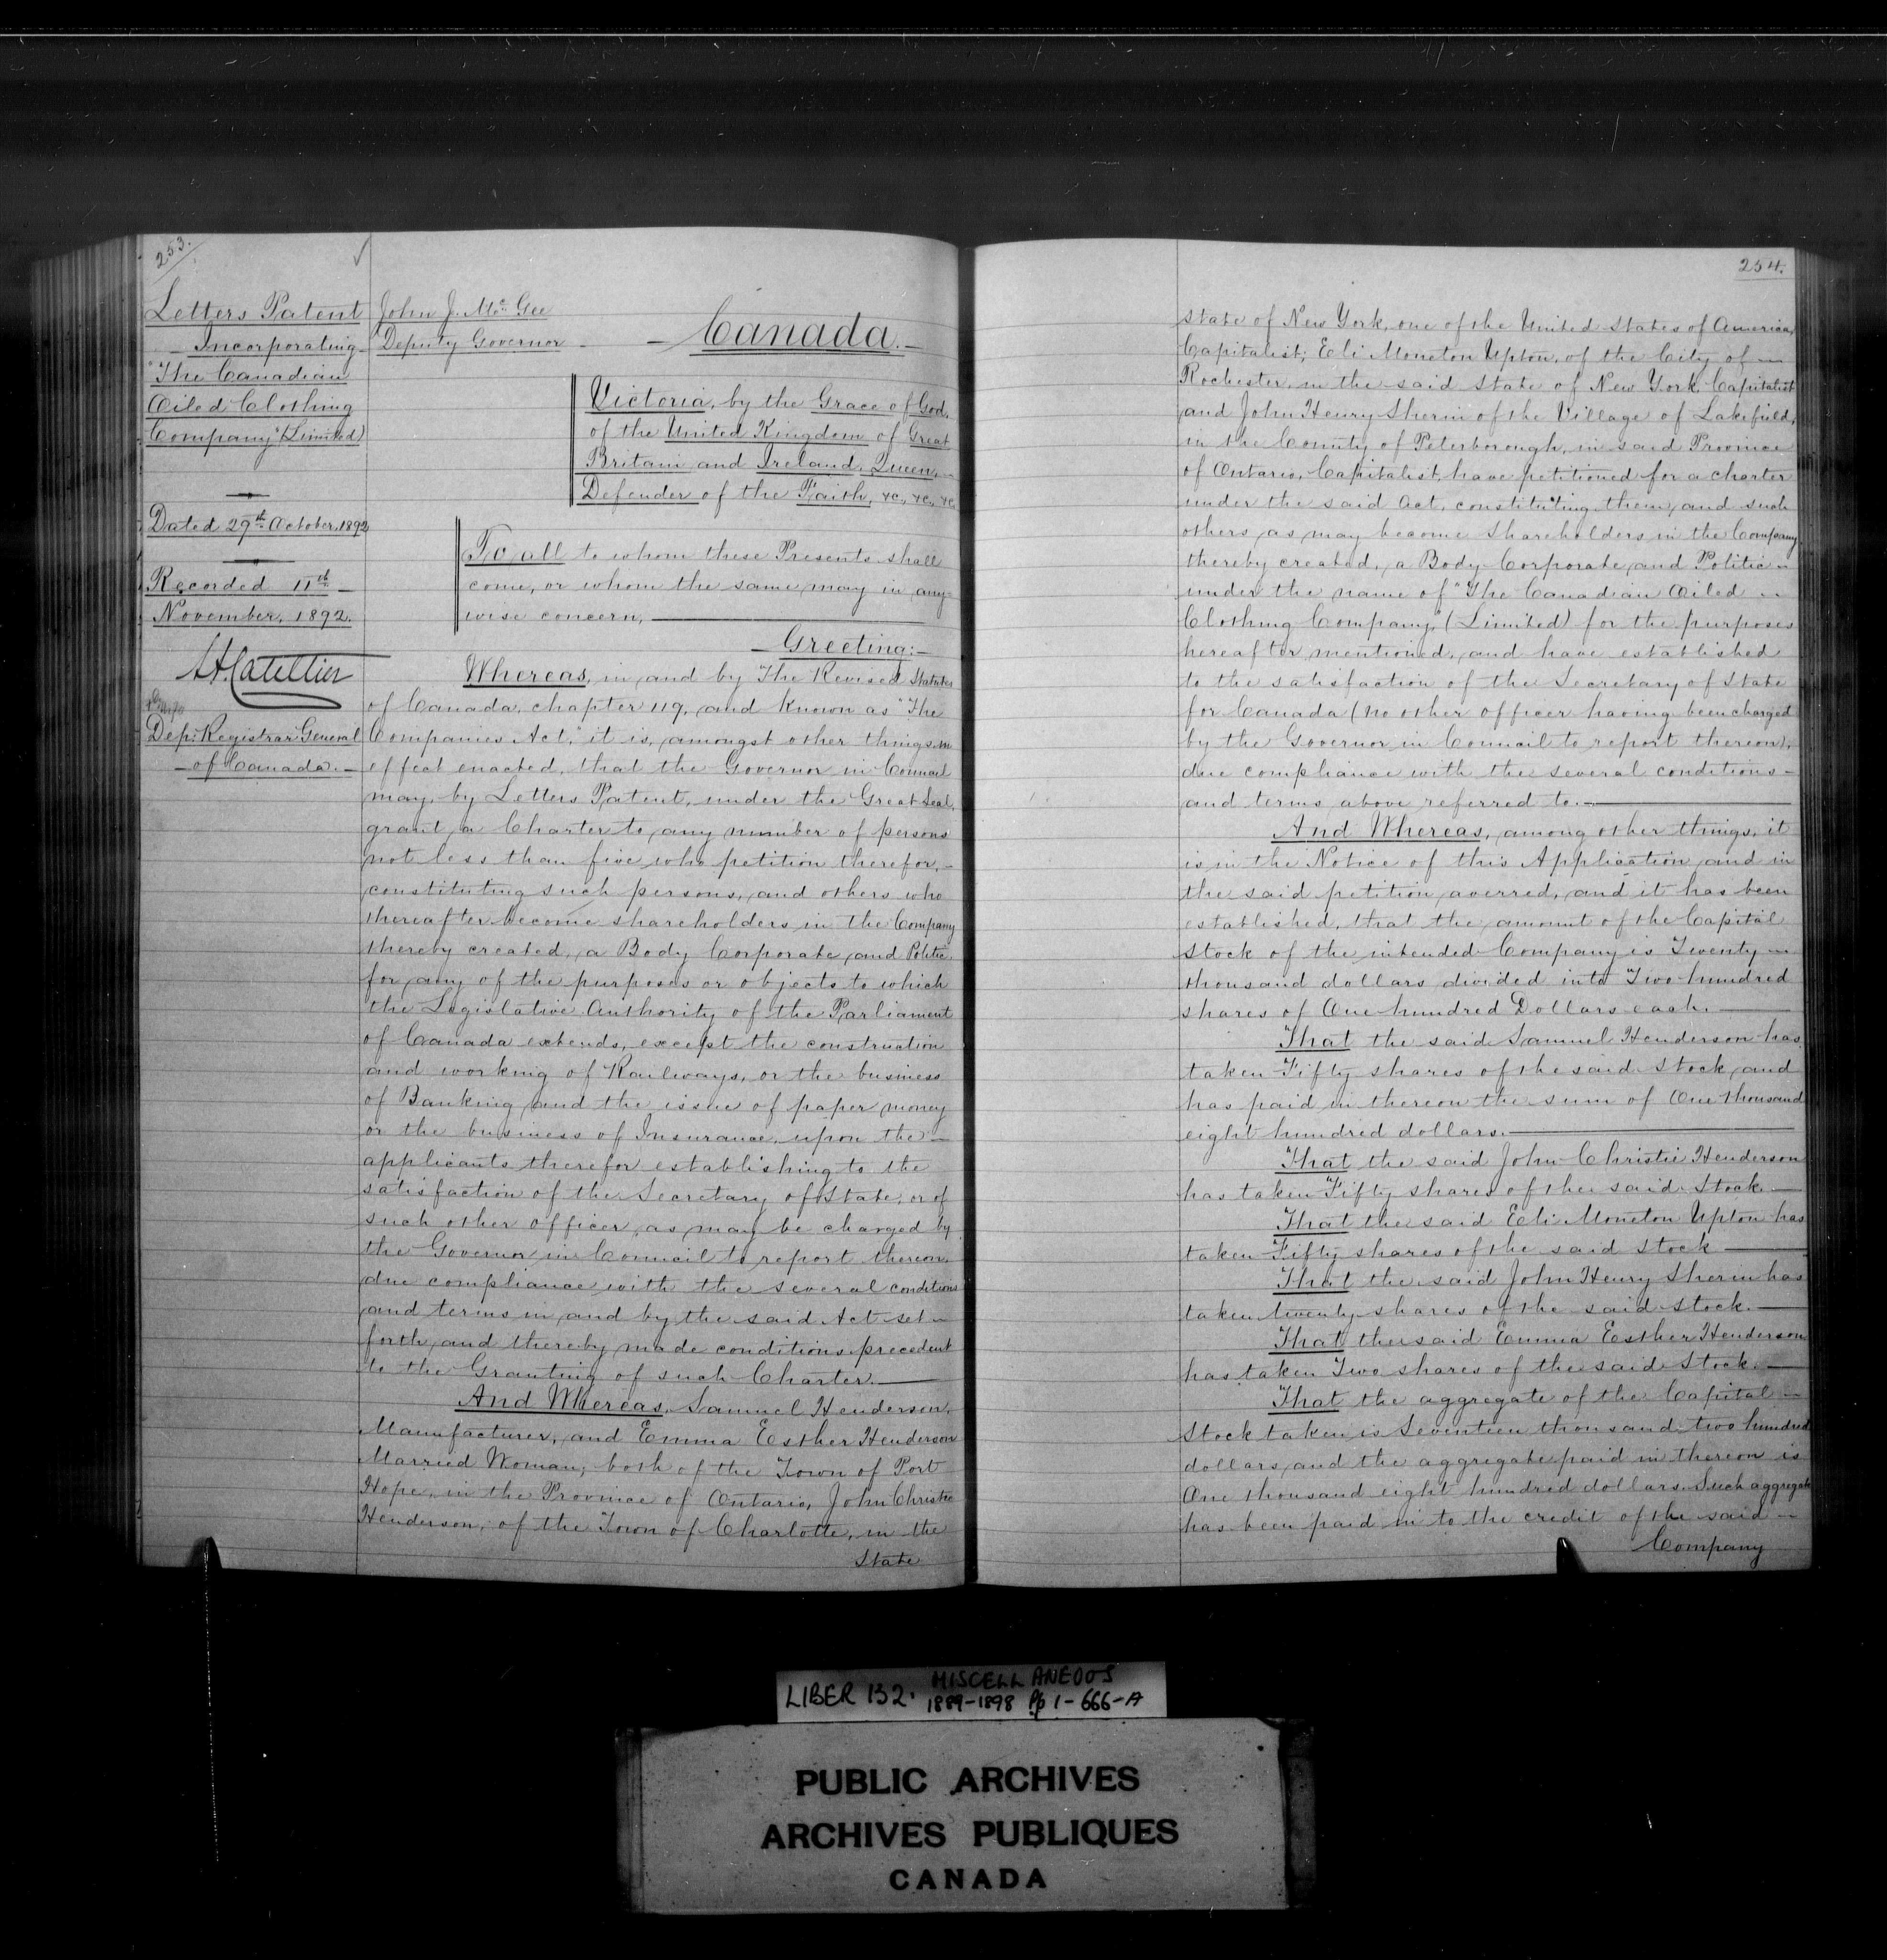 253.
Letters Patent
Incorporating
"The Canadian
Oiled Clothing
Company" (Limited)
Dated 29th October, 1892
Recorded 11th
November, 1892.
Dep: Registrar General
of Canada.
John J. McGee
Deputy Governor
Canada.
Victoria, by the Grace of God,
of the United Kingdom of Great
Britain and Ireland, Queen,
Defender of the Faith, &c., &c., &c.
To all to whom these Presents shall
come, or whom the same may in any
wise concern,
Greeting:
Whereas, in and by "The Revised Statutes
of Canada, chapter 119, and known as "The
Companies Act," it is, amongst other things, in
effect enacted, that the Governor in Council
may, by Letters Patent, under the Great Seal,
grant a Charter to any number of persons
not less than five who petition therefor,
constituting such persons, and others who
thereafter become shareholders in the Company
thereby created, a Body Corporate and Politic
for any of the purposes or objects to which
the Legislative Authority of the Parliament
of Canada extends, except the construction
and working of Railways, or the business
of Banking and the issue of paper money
or the business of Insurance, upon the
applicants therefor establishing to the
satisfaction of the Secretary of State, or of
such other officer as may be charged by
the Governor in Council to report thereon,
due compliance with the several conditions
and terms in and by the said Act set
forth and thereby made conditions precedent
to the Granting of such Charter.
And Whereas, Samuel Henderson,
Manufacturer, and Emma Esther Henderson
Married Woman, both of the Town of Port
Hope, in the Province of Ontario, John Christie
Henderson, of the Town of Charlotte, in the
State
254.
State of New York, one of the United States of America,
Capitalist; Eli Moneton Upton, of the City of
Rochester, in the said State of New York, Capitalist
and John Henry Sherin of the Village of Lakefield,
in the County of Peterborough, in said Province
of Ontario, Capitalist, have petitioned for a charter
under the said Act, constituting them, and such
others as may become Shareholders in the Company
thereby created, a Body Corporate and Politic
under the name of "The Canadian Oiled
Clothing Company," (Limited) for the purposes
hereafter mentioned, and have established
to the satisfaction of the Secretary of State
for Canada (no other officer having been charged
by the Governor in Council to report thereon),
due compliance with the several conditions
and terms above referred to.
And Whereas, among other things, it
is in the Notice of this Application and in
the said petition averred, and it has been
established, that the amount of the Capital
Stock of the intended Company is Twenty
thousand dollars divided into Two hundred
shares of One hundred Dollars each.
That the said Samuel Henderson has
taken Fifty shares of the said Stock, and
has paid in thereon the sum of One thousand
eight hundred dollars.
That the said John Christie Henderson
has taken Fifty shares of the said Stock.
That the said Eli Moneton Upton has
taken Fifty shares of the said Stock
That the said John Henry Sherin has
taken twenty shares of the said Stock.
That the said Emma Esther Henderson
has taken Two shares of the said Stock.
That the aggregate of the Capital
Stock taken is Seventeen thousand two hundred
dollars, and the aggregate paid in thereon is
One thousand eight hundred dollars. Such aggregate
has been paid in to the credit of the said
Company
LIBER 132. MISCELLANEOUS
1889-1898 Pp 1-666-A
PUBLIC ARCHIVES
ARCHIVES PUBLIQUES
CANADA